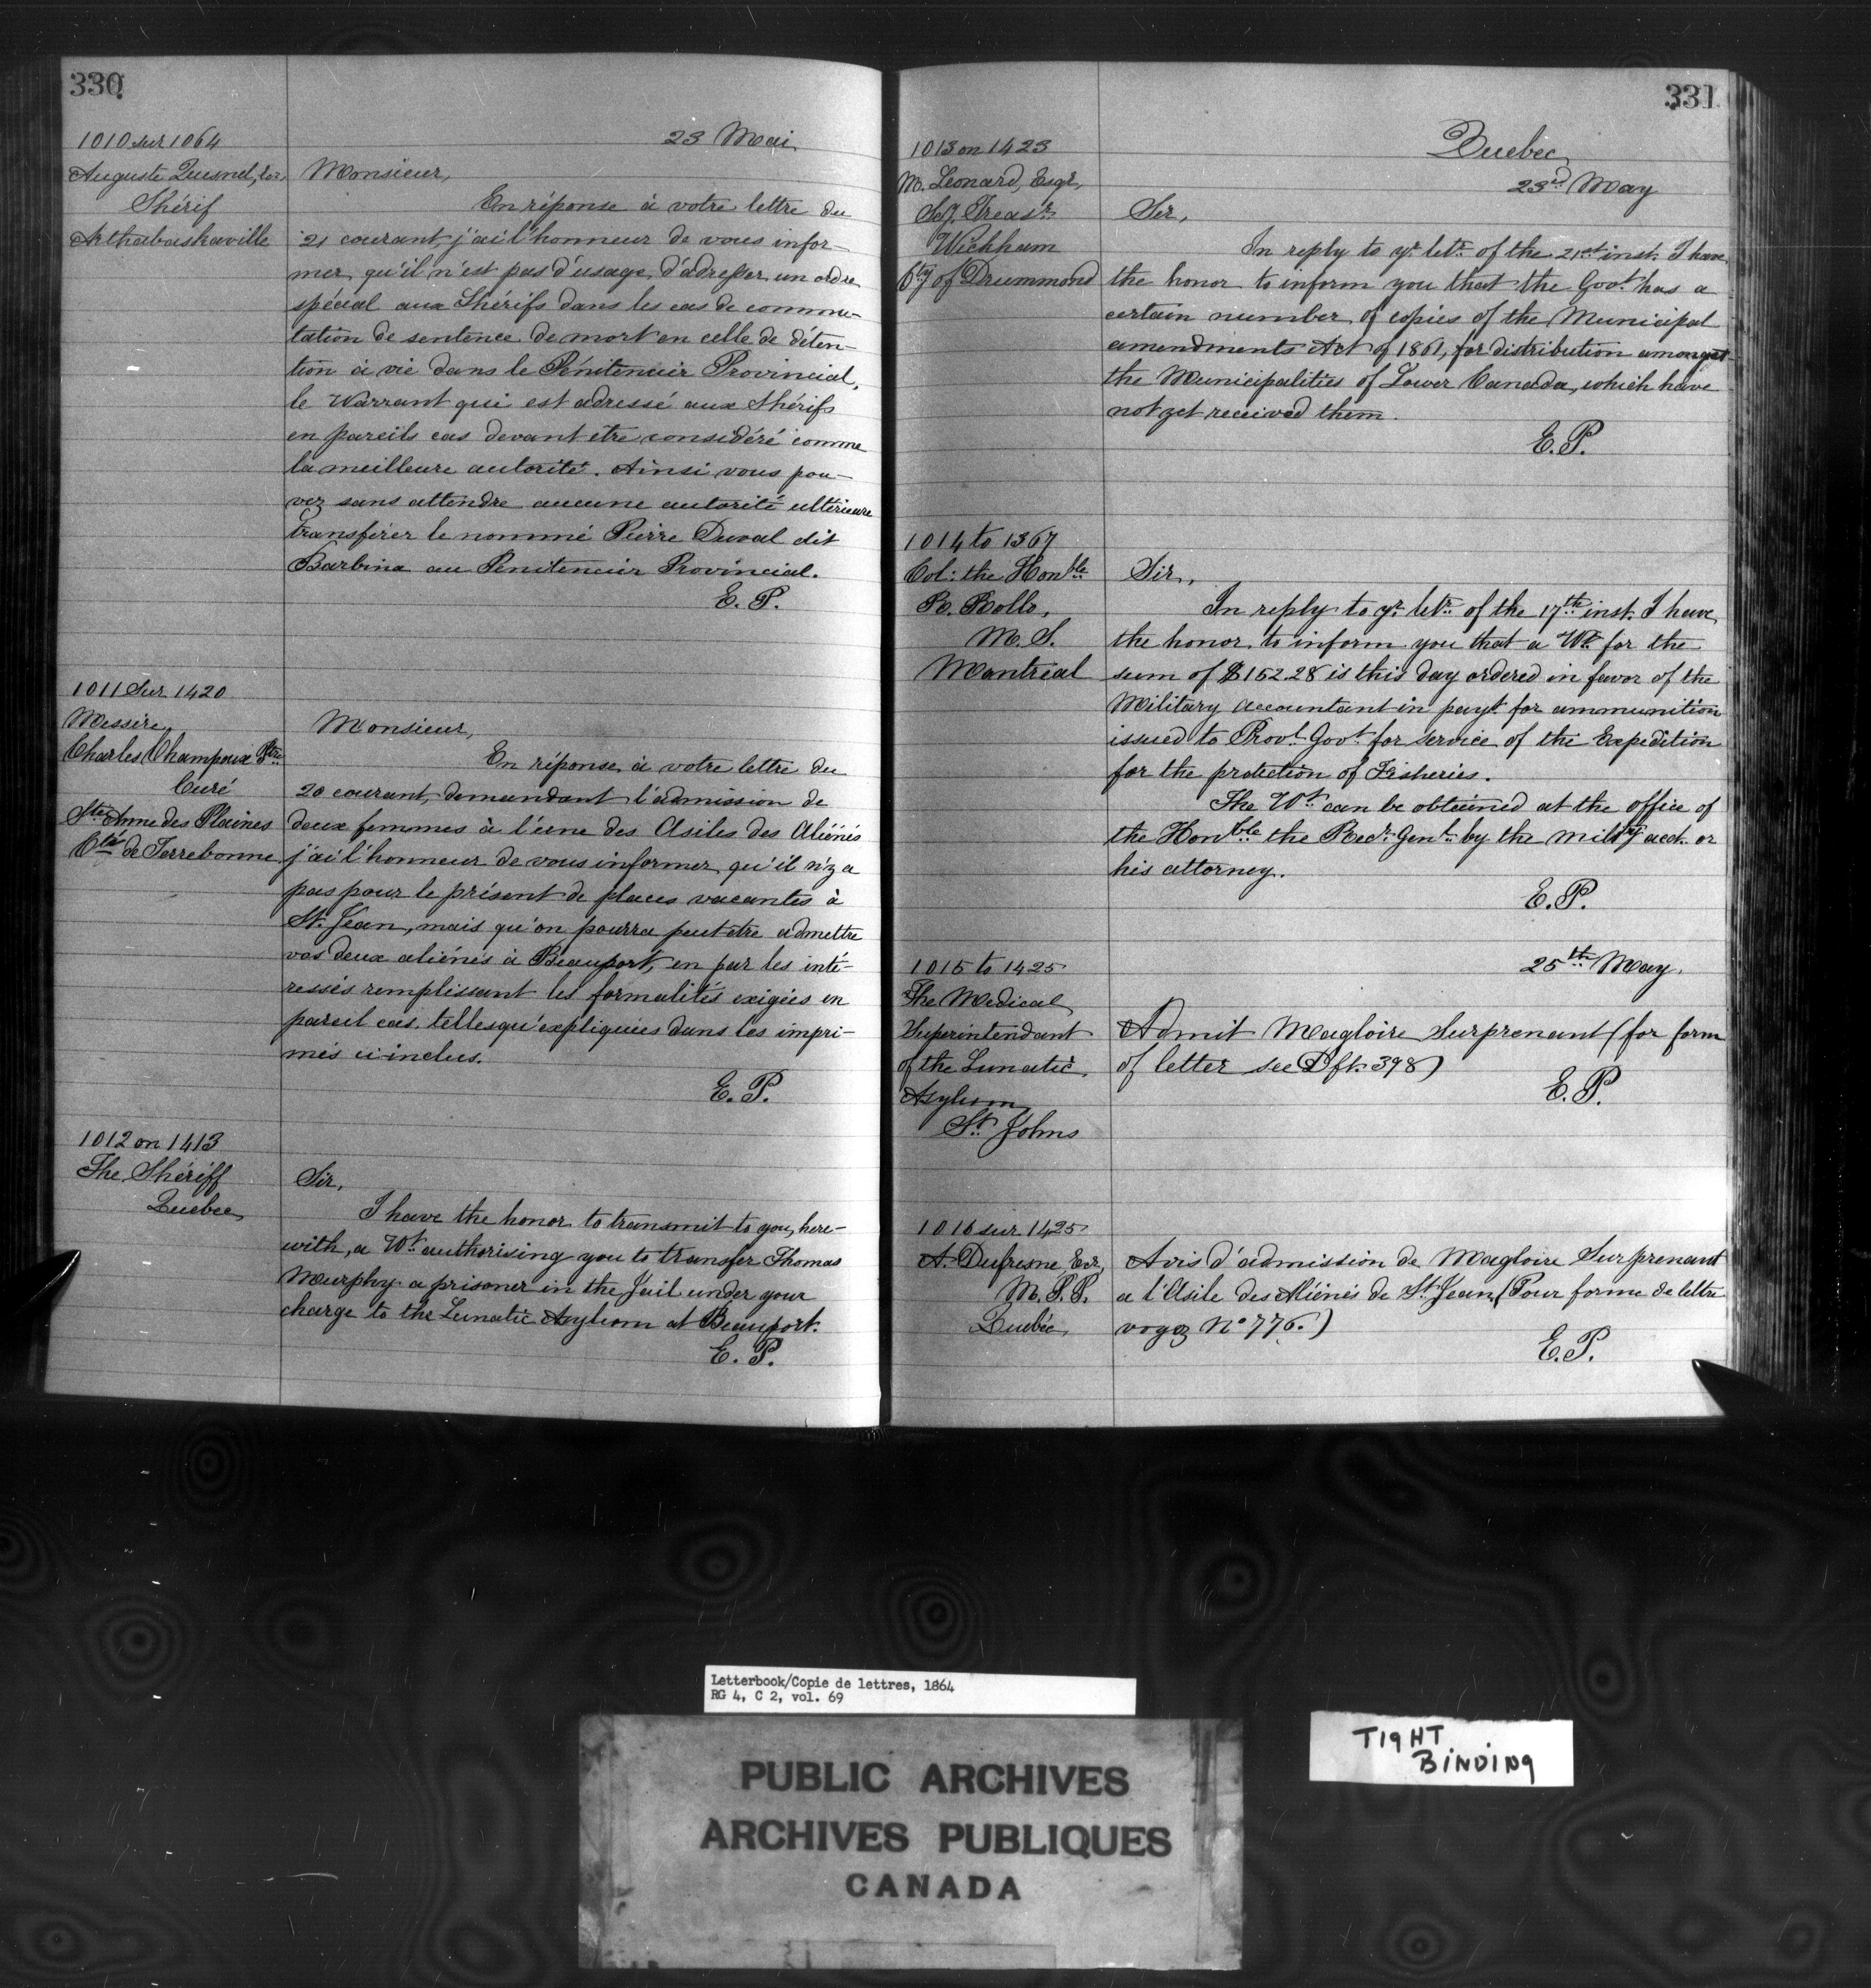 330
23 Mai
1010 sur 1064
Auguste Quesnel, Ecr,
Shérif
Arthabaskaville
Monsieur,
En réponse à votre lettre du
21 courant, j'ai l'honneur de vous infor-
mer qu'il n'est pas d'usage d'adresser un ordre
spécial aux Shérifs dans les cas de commu-
tation de sentence de mort en celle de déten-
tion à vie dans le Pénitencier Provincial,
le Warrant qui est adressé aux Shérifs
en pareils cas devant être considéré comme
la meilleure autorité. Ainsi vous pou-
vez sans attendre aucune autorité ultérieure
transférer le nommé Pierre Duval dit
Barbina au Pénitencier Provincial.
E. P.
1011 Sur 1420
Messire
Charles Champoux Ptre
Curé
Ste Anne des Plaines
Cté de Terrebonne
Monsieur,
En réponse à votre lettre du
20 courant, demandant l'admission de
deux femmes à l'une des Asiles des Aliénés
j'ai l'honneur de vous informer qu'il n'y a
pas pour le présent de places vacantes à
St. Jean, mais qu'on pourra peut être admettre
vos deux aliénés à Beauport, en par les inté-
ressés remplissant les formalités exigées en
pareil cas telles qu'expliquées dans les impri-
més ci-inclus.
E. P.
1012 on 1413
The Shériff
Quebec
Sir,
I have the honor to transmit to you, here-
with, a Wt. authorising you to transfer Thomas
Murphy a prisoner in the Jail under your
charge to the Lunatic Asylum at Beauport.
E. P.
331
Quebec
23rd May
1013 on 1423
M. Leonard, Esqr,
Sy. Treasr.
Wickham
Cty of Drummond
Sir,
In reply to yr. letr. of the 21st inst. I have
the honor to inform you that the Govt. has a
certain number of copies of the Municipal
amendments Act of 1861, for distribution amongst
the Municipalities of Lower Canada, which have
not yet received them.
E. P.
1014 to 1367
Col: the Honble
R. Rollo,
M. S.
Montreal
Sir,
In reply to yr. letr. of the 17th inst. I have
the honor to inform you that a Wt. for the
sum of $152.28 is this day ordered in favor of the
Military accountant in payt. for ammunition
issued to Provl. Govt. for service of the Expedition
for the protection of Fisheries.
The Wt. can be obtained at the office of
the Honble the Recr. Genl. by the milty acct. or
his attorney.
E. P.
25th May.
1015 to 1425
The Medical
Superintendant
of the Lunatic
Asylum
St. Johns
Admit Magloire Surprenant (for form
of letter see Dft. 398)
E. P.
1016 sur 1425
A. Dufresne, Ecr,
M. P. P.
Québec
Avis d'admission de Magloire Surprenant
a l'Asile des Aliénés de St. Jean, (Pour forme de lettre
voyez No 776.)
E. P.
Letterbook/Copie de lettres, 1864
RG 4, C 2, vol. 69
PUBLIC ARCHIVES
ARCHIVES PUBLIQUES
CANADA
TIGHT
BINDING